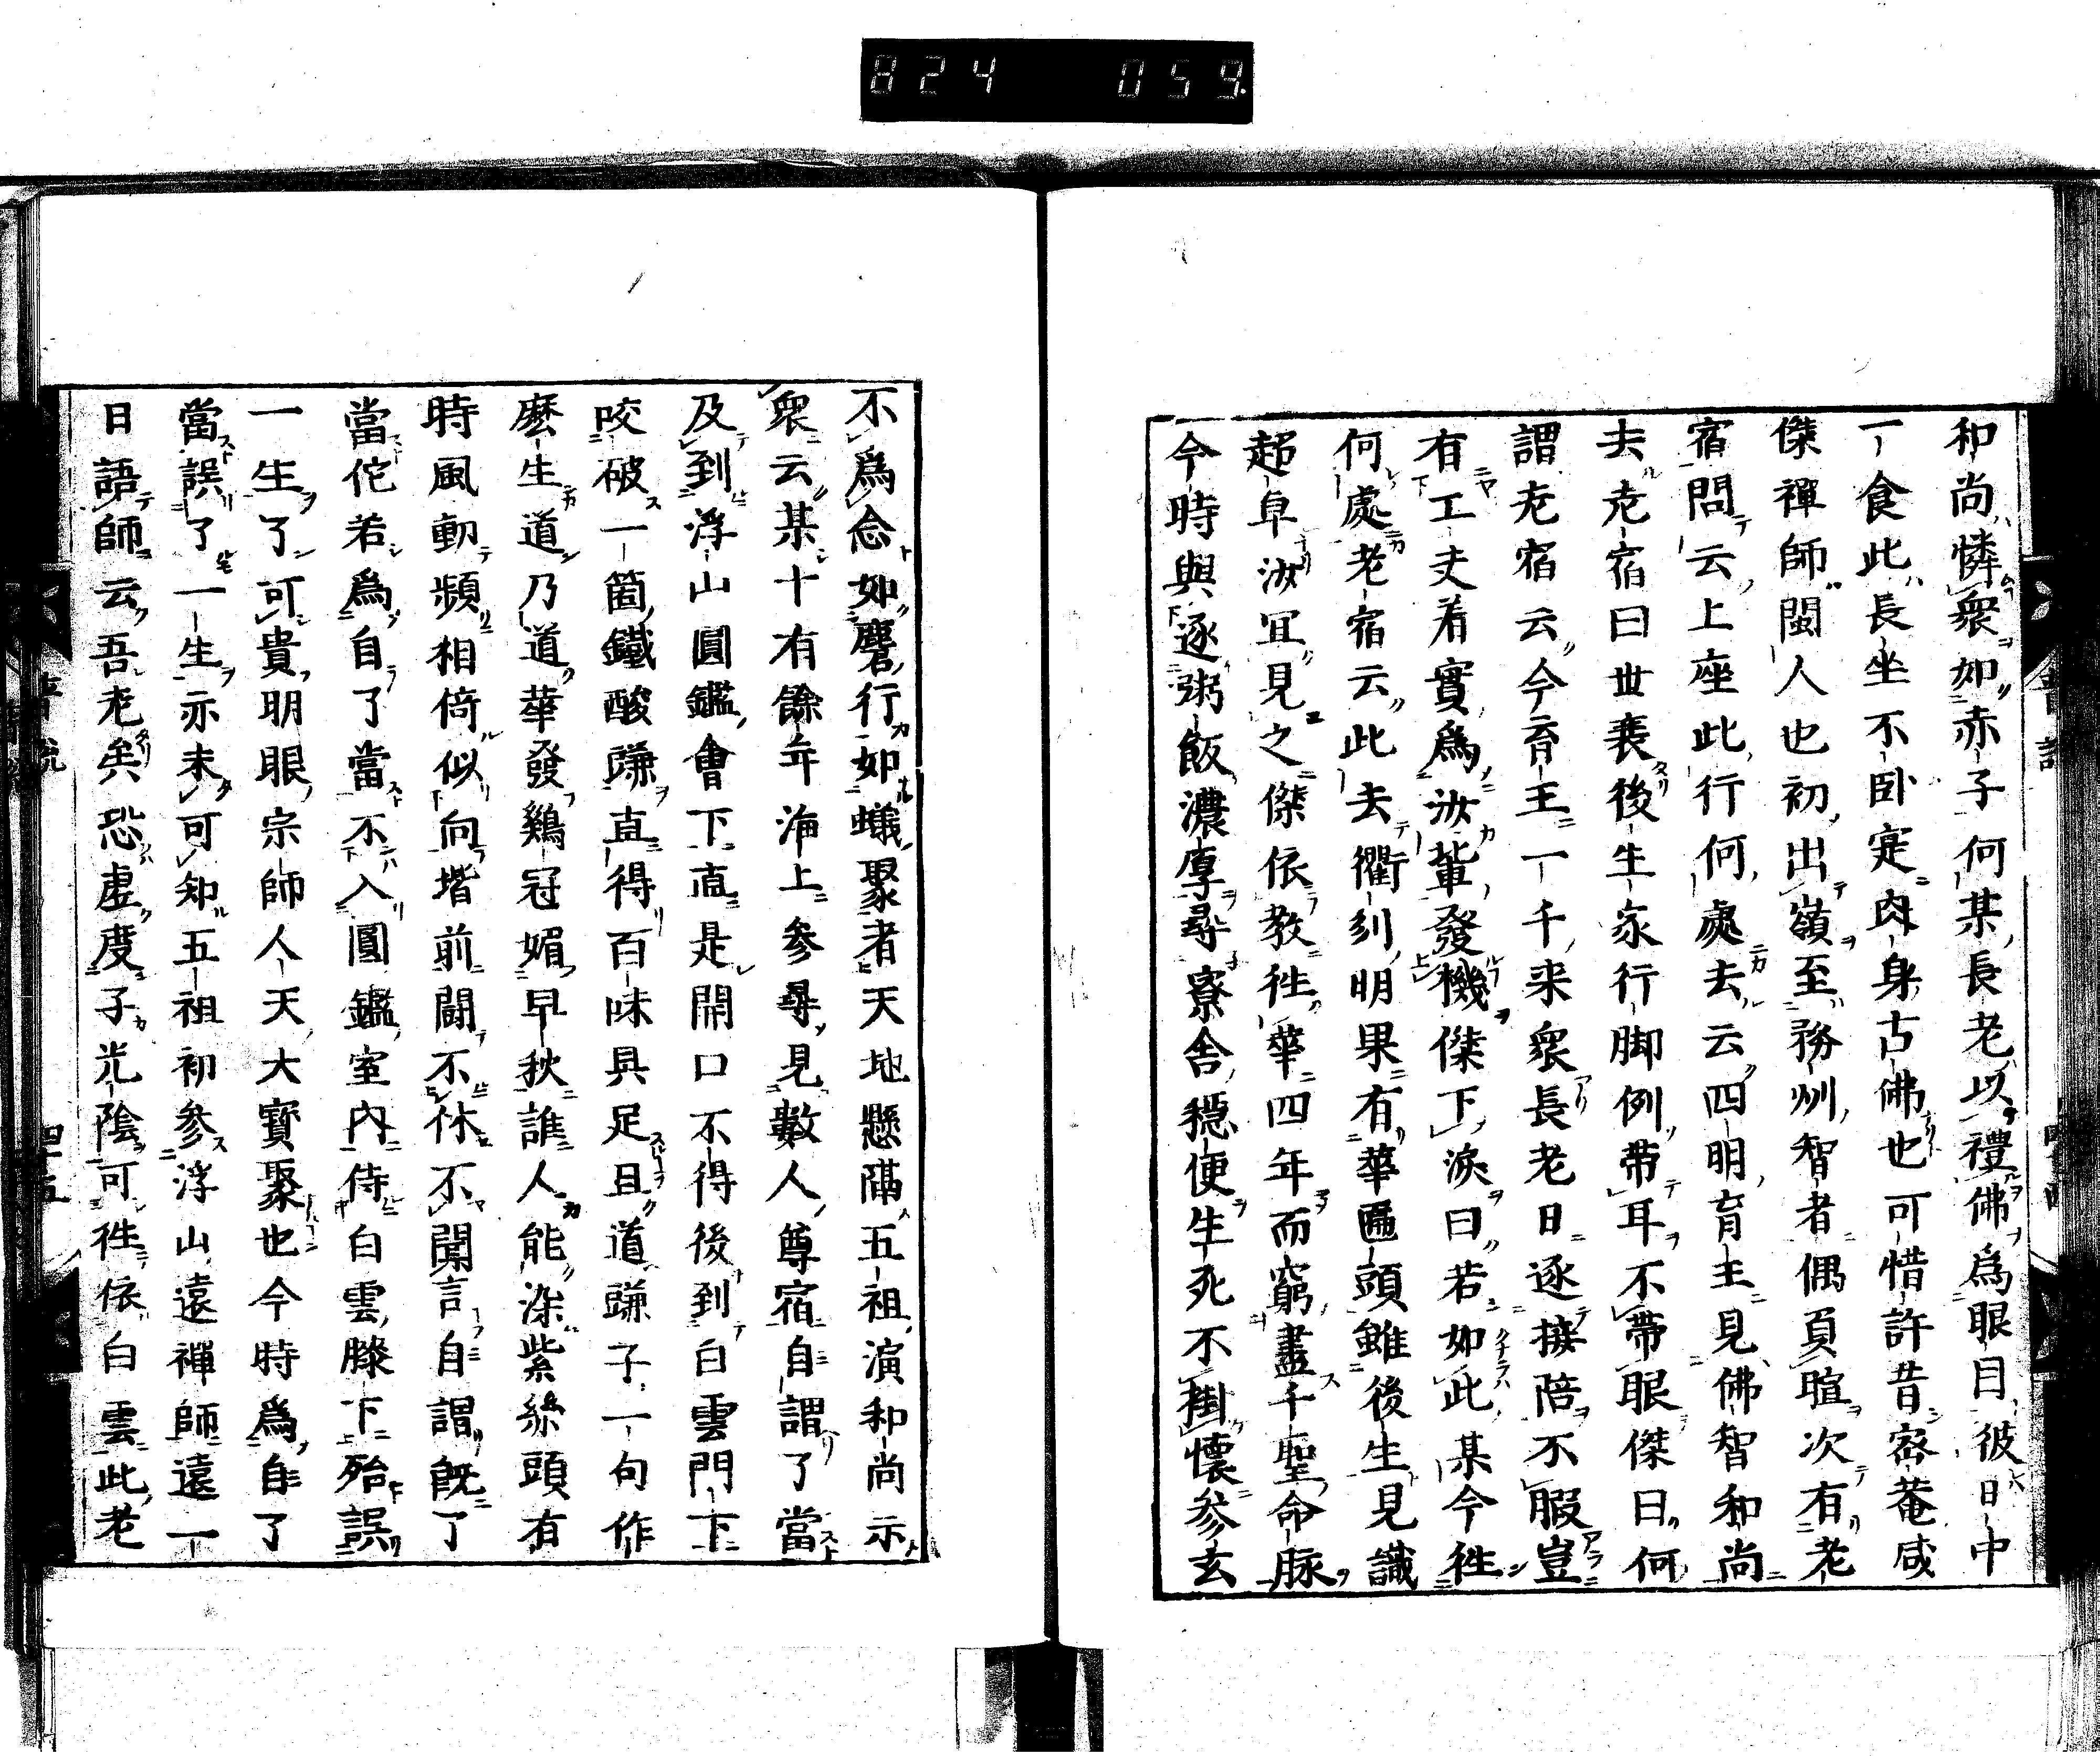 824 059
和尚憐衆如赤子何某長老以禮佛爲眼目彼日中
一食此長坐不臥寔肉身古佛也可惜許昔密菴咸
傑禪師閩人也初出嶺至務州智者偶負暄次有老
宿問云上座此行何處去云四明育王見佛智和尚
去老宿曰世衰後生家行脚例帶耳不帶眼傑曰何
謂老宿云今育王一千來衆長老日逐接陪不暇豈
有工夫着實爲汝輩發機傑下淚曰若如此某今徃
何處老宿云此去衢州明果有華匾頭雖後生見識
超卓汝宜見之傑依教徃華四年而窮盡千聖命脉
今時與逐粥飯濃厚尋寮舍穩便生死不掛懷參玄
不爲念如磨行如蟻聚者天地懸隔五祖演和尚示
衆云某十有餘年海上參尋見數人尊宿自謂了當
及到浮山圓鑑會下直是開口不得後到白雲門下
咬破一箇鐵酸豏直得百味具足且道豏子一句作
麼生道乃道華發鷄冠媚早秋誰人能染紫絲頭有
時風動頻相倚似向堦前鬪不休不聞言自謂既了
當佗若爲自了當不入圓鑑室內侍白雲膝下殆誤
一生了可貴明眼宗師人天大寶聚也今時爲自了
當誤了一生亦未可知五祖初參浮山遠禪師遠一
日語師云吾老矣恐虛度子光陰可徃依白雲此老